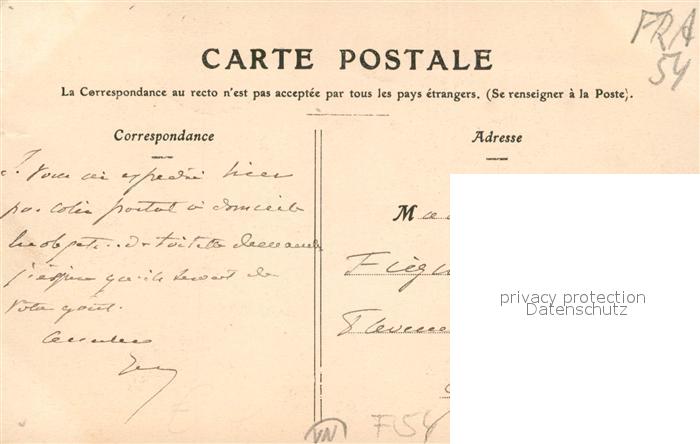 FRA
54
CARTE POSTALE
La Correspondance au recto n'est pas acceptée par tous les pays étrangers. (Se renseigner à la Poste).
Correspondance
Adresse
Je vous ai expédié hier
par colis postal à domicile
les objets de toilette demandés
j'espère qu'ils seront de
votre goût.
M
privacy protection
Datenschutz
VN
F54